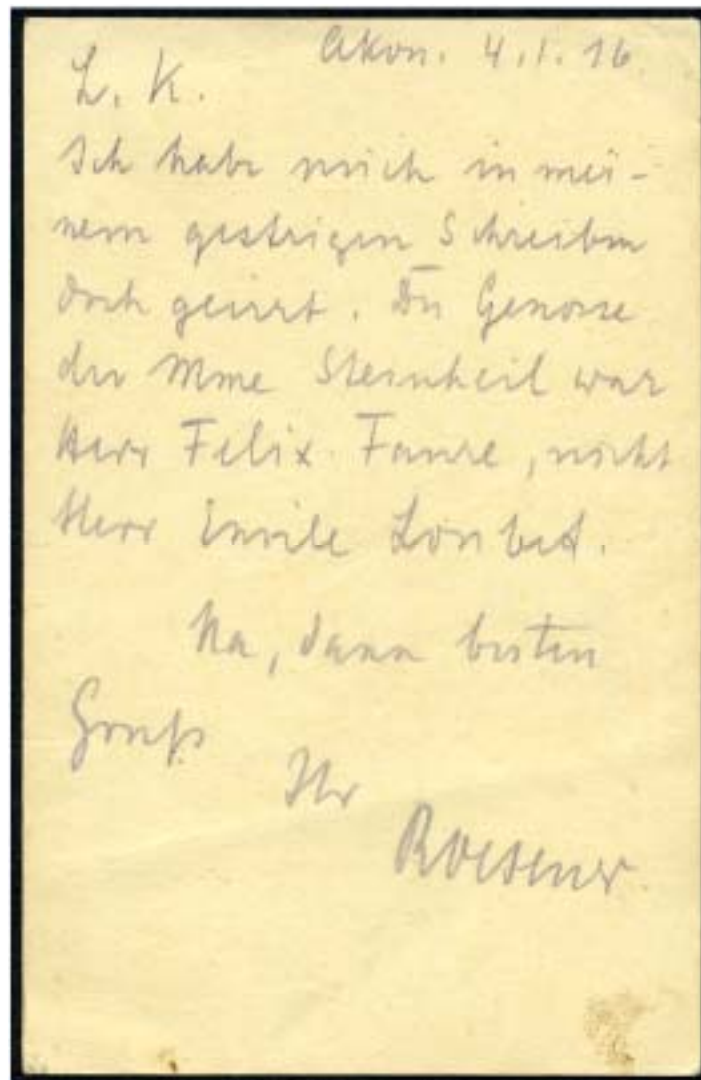 Akon. 4.1.16
L. K.
Ich habe mich in mei-
nem gestrigen Schreiben
doch geirrt. Der Genosse
der Mme Steinheil war
Herr Felix Faure, nicht
Herr Emile Loubet.
Na, dann besten
Gruß
Ihr
Roesener.